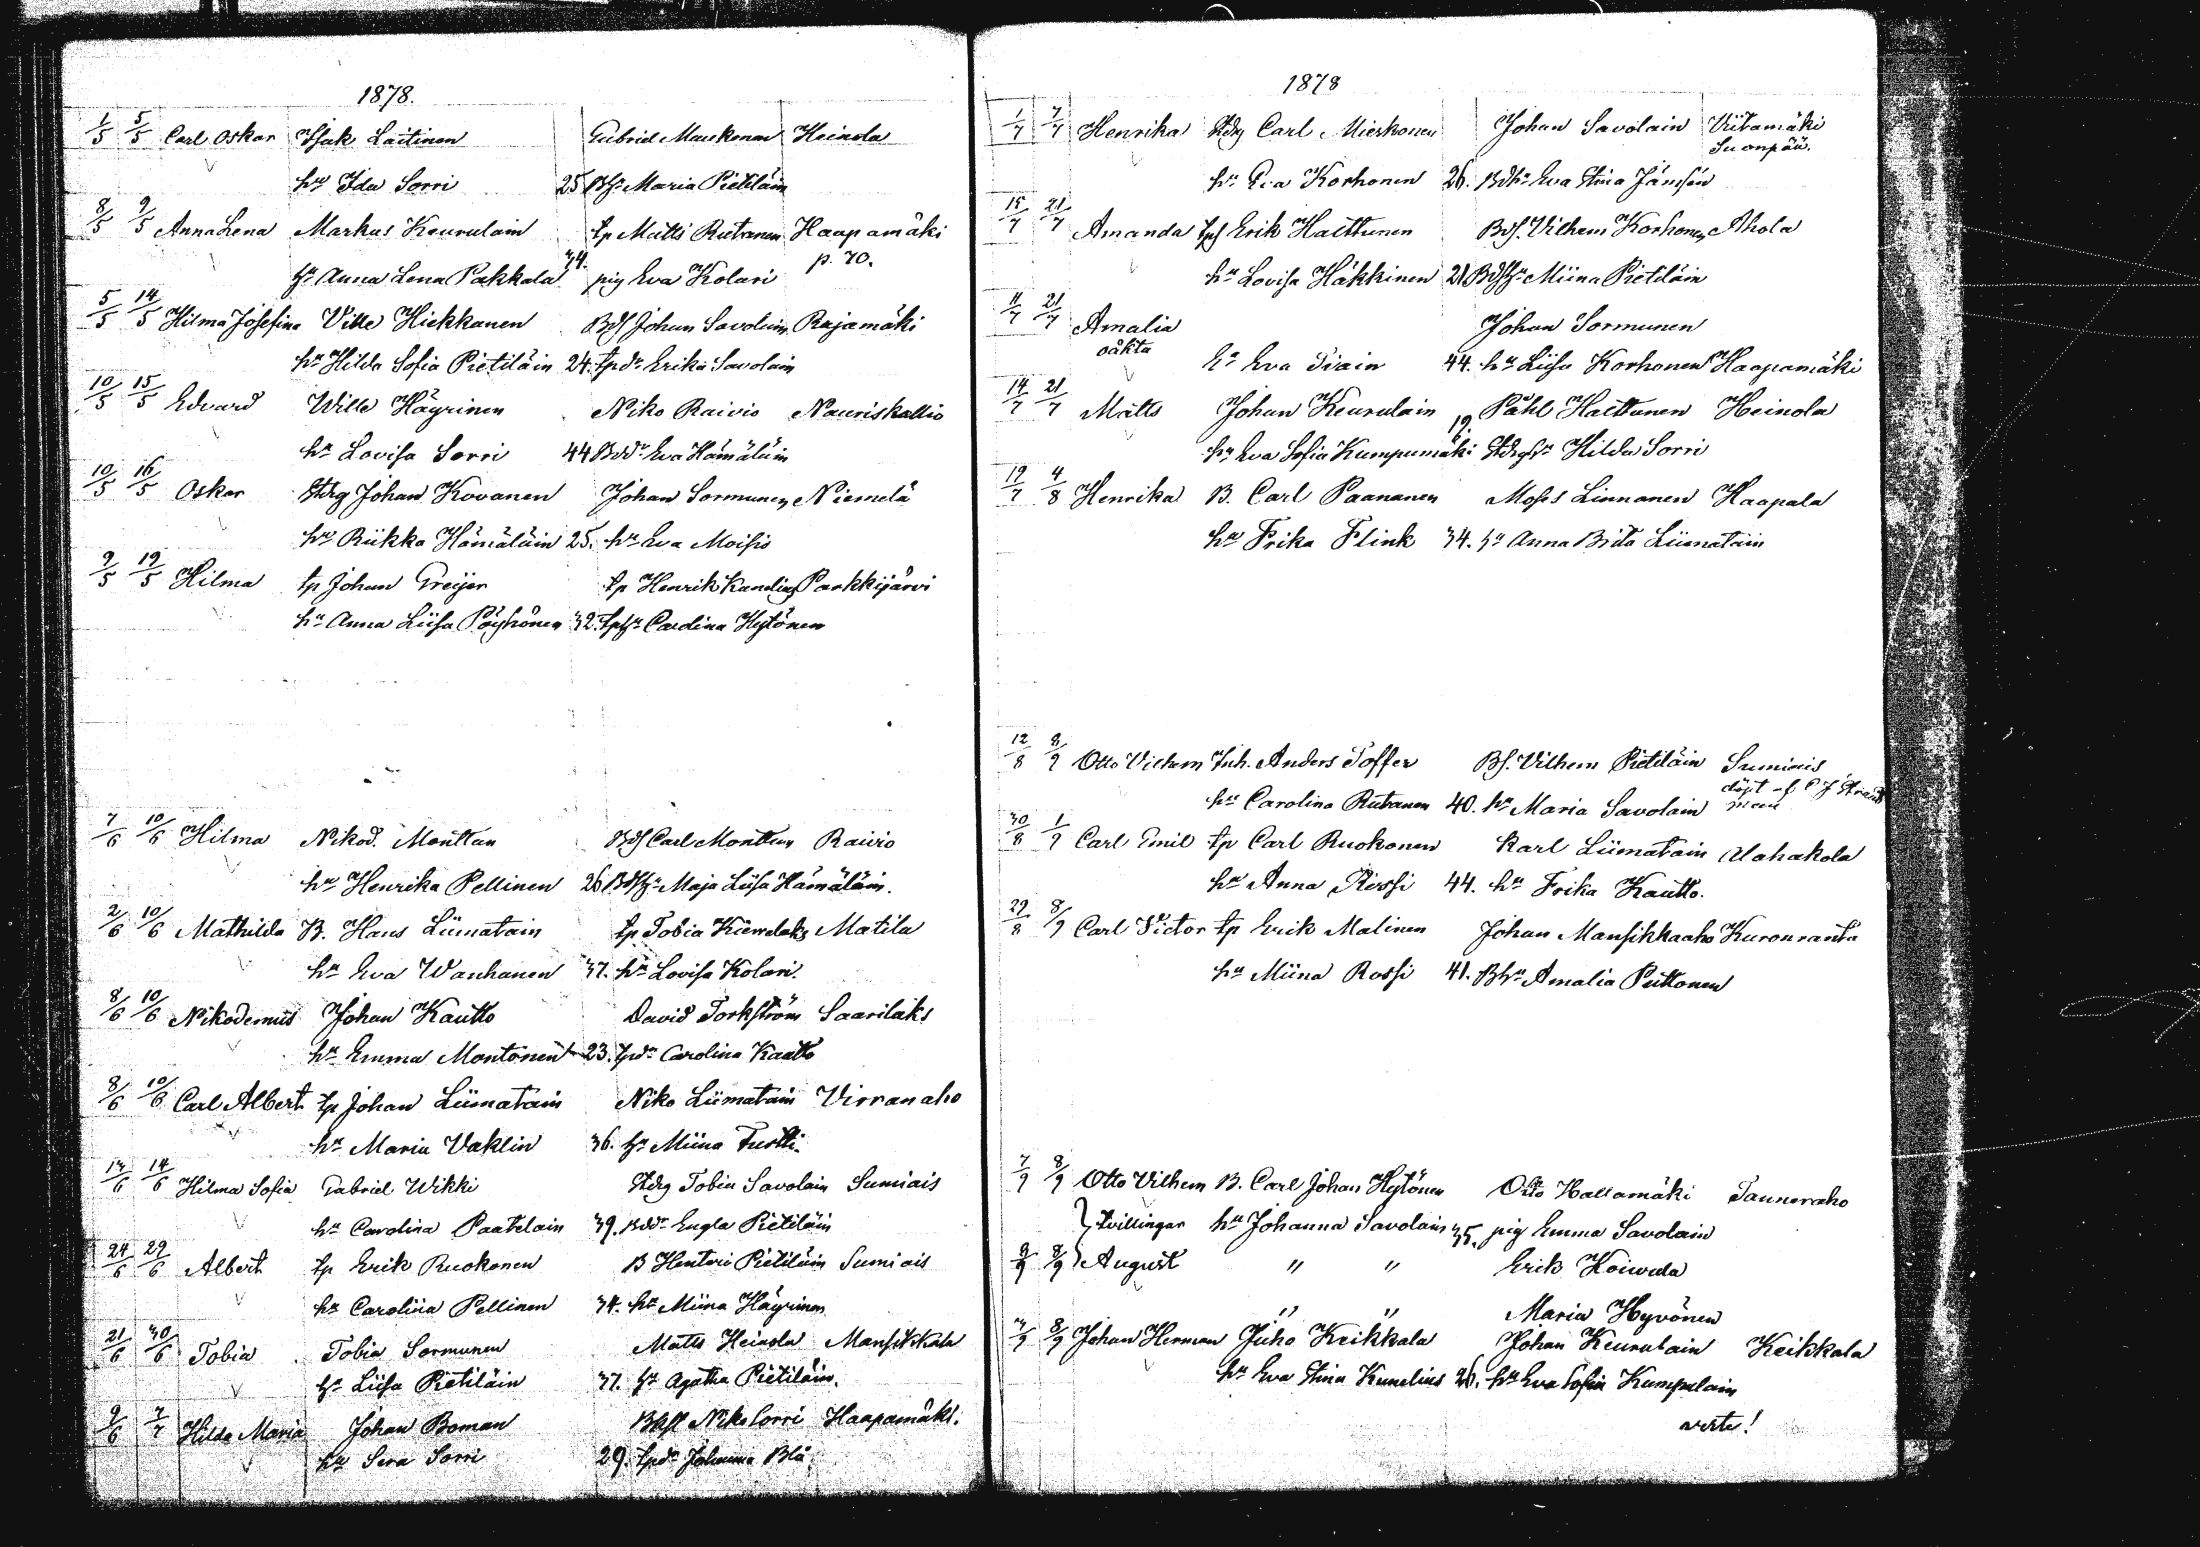 1878.
1/5 5/5 Carl Oskar Isak Laitinen Gabriel Mankonen Heinola
hu Ida Sorri 25 Maria Pietiläin
8/5 9/5 Anna Lena Markus Keurulain tp Matts Rutanen Haapamäki
hu Anna Lena Pakkala 34. pig Eva Kolari p. 70.
5/5 14/5 Hilma Josefina Ville Hiekkanen Bdf Johan Savolain Rajamäki
hu Hilda Sofia Pietiläin 24. tpdr Erika Savolain
10/5 15/5 Edvard Wille Häyrinen Niko Raivio Nauriskallio
hu Lovisa Sorri 44 Bddr Eva Hämäläin
10/5 16/5 Oskar Stdrg Johan Kovanen Johan Sormunen Niemelä
hu Riikka Hämäläin 25. hu Eva Moisis
9/5 19/5 Hilma tp Johan Greijer tp Henrik Kunelius Parkkijärvi
hu Anna Liisa Pöyhönen 32. Carolina Hytönen
7/6 10/6 Hilma Nikod. Monttan Bdf Carl Monttun Raivio
hu Henrika Pellinen 26 Maja Liisa Hämäläin.
2/6 10/6 Mathilda B. Hans Liimatain tp Tobia Matila
hu Eva Wanhanen 37. hu Lovisa Kolari.
8/6 10/6 Nikodemus Johan Kautto David Torkström Saarilaks
hu Emma Montonen 23. tpdr Carolina Kautto
8/6 10/6 Carl Albert tp Johan Liimatain Niko Liimatain Virranaho
hu Maria Vaklin 36. hu Miina Turtti.
13/6 14/6 Hilma Sofia Gabriel Wikki Stdrg Tobia Savolain Sumiais
hu Carolina Paatelain 39. Bddr Engla Pietiläin
24/6 29/6 Albert tp Erik Ruokonen B Henteri Pietiläin Sumiais
hu Carolina Pellinen 34. hu Miina Häyrinen
21/6 30/6 Tobia Tobia Sormunen Matts Heinola Mansikkala
hu Liisa Pietiläin 37. hu Agatha Pietiläin.
9/6 7/7 Hilda Maria Johan Boman Niko Sorri Haapamäki.
hu Sera Sorri 29. tpdr Johanna Blå.
1878
1/7 7/7 Henrika Stdrg Carl Mieskonen Johan Savolain Viitamäki
Suonpää.
hu Eva Korhonen 26. Eva Stina Jämsén
15/7 21/7 Amanda Erik Halttunen Bdf. Vilhem Korhonen Ahola
hu Lovisa Häkkinen 21 Miina Pietiläin
11/7 21/7 Amalia Johan Sormunen
oäkta
Eva Piain 44. hu Liisa Korhonen Haapamäki
14/7 21/7 Matts Johan Keurulain Påhl Halttunen Heinola
hu Eva Sofia Kumpumäki 19. Hilda Sorri
19/7 4/8 Henrika B. Carl Paananen Moses Linnanen Haapala
hu Frika Flink 34. hu Anna Brita Liimatain
12/8 8/9 Otto Vilhem Inh. Anders Toffer Bf. Vilhem Pietiläin Sumiais
döpt af C J
hu Carolina Rutanen 40. hu Maria Savolain
30/8 1/9 Carl Emil tp Carl Ruokonen Karl Liimatain Mahakola
hu Anna Rossi 44. hu Frika Kautto.
29/8 8/9 Carl Victor tp Erik Malinen Johan Mansikkaaho Kuronranta
hu Miina Rossi 41. Bhu Amalia Puttonen
7/9 8/9 Otto Vilhem B. Carl Johan Hytönen Otto Hallamäki Tauneraho
tvillingar hu Johanna Savolain 35. pig Emma Savolain
9/9 8/9 August " " Erik Koivula
" " Maria Hyvönen
3/9 8/9 Johan Herman Juho Keikkala Johan Keurulain Keikkala
hu Eva Stina Kunelius 26. hu Eva Sofia Kumpulain
verte!